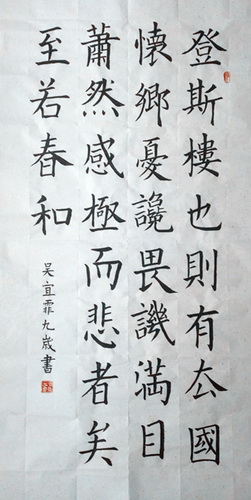 登斯樓也則有厺國
懷鄉憂讒畏譏満目
蕭然感極而悲者矣
至若春和
吴宜霏九歲書